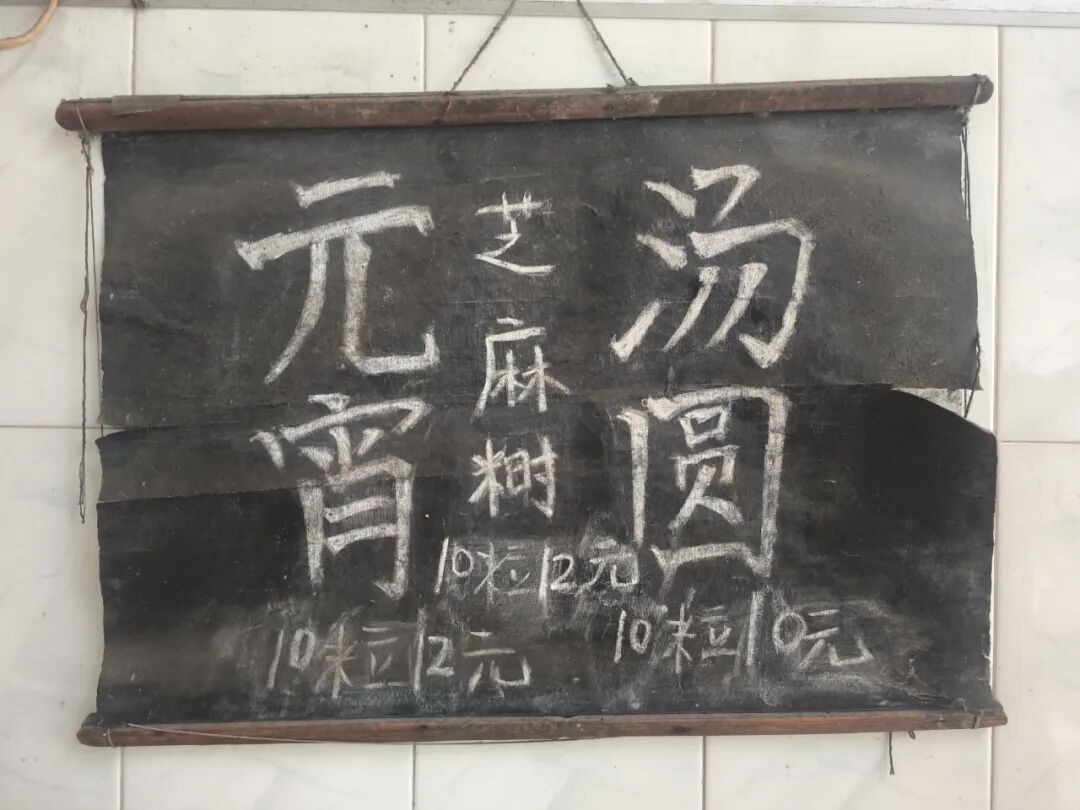 元宵
10粒12元
芝麻
10粒12元
汤圆
10粒10元